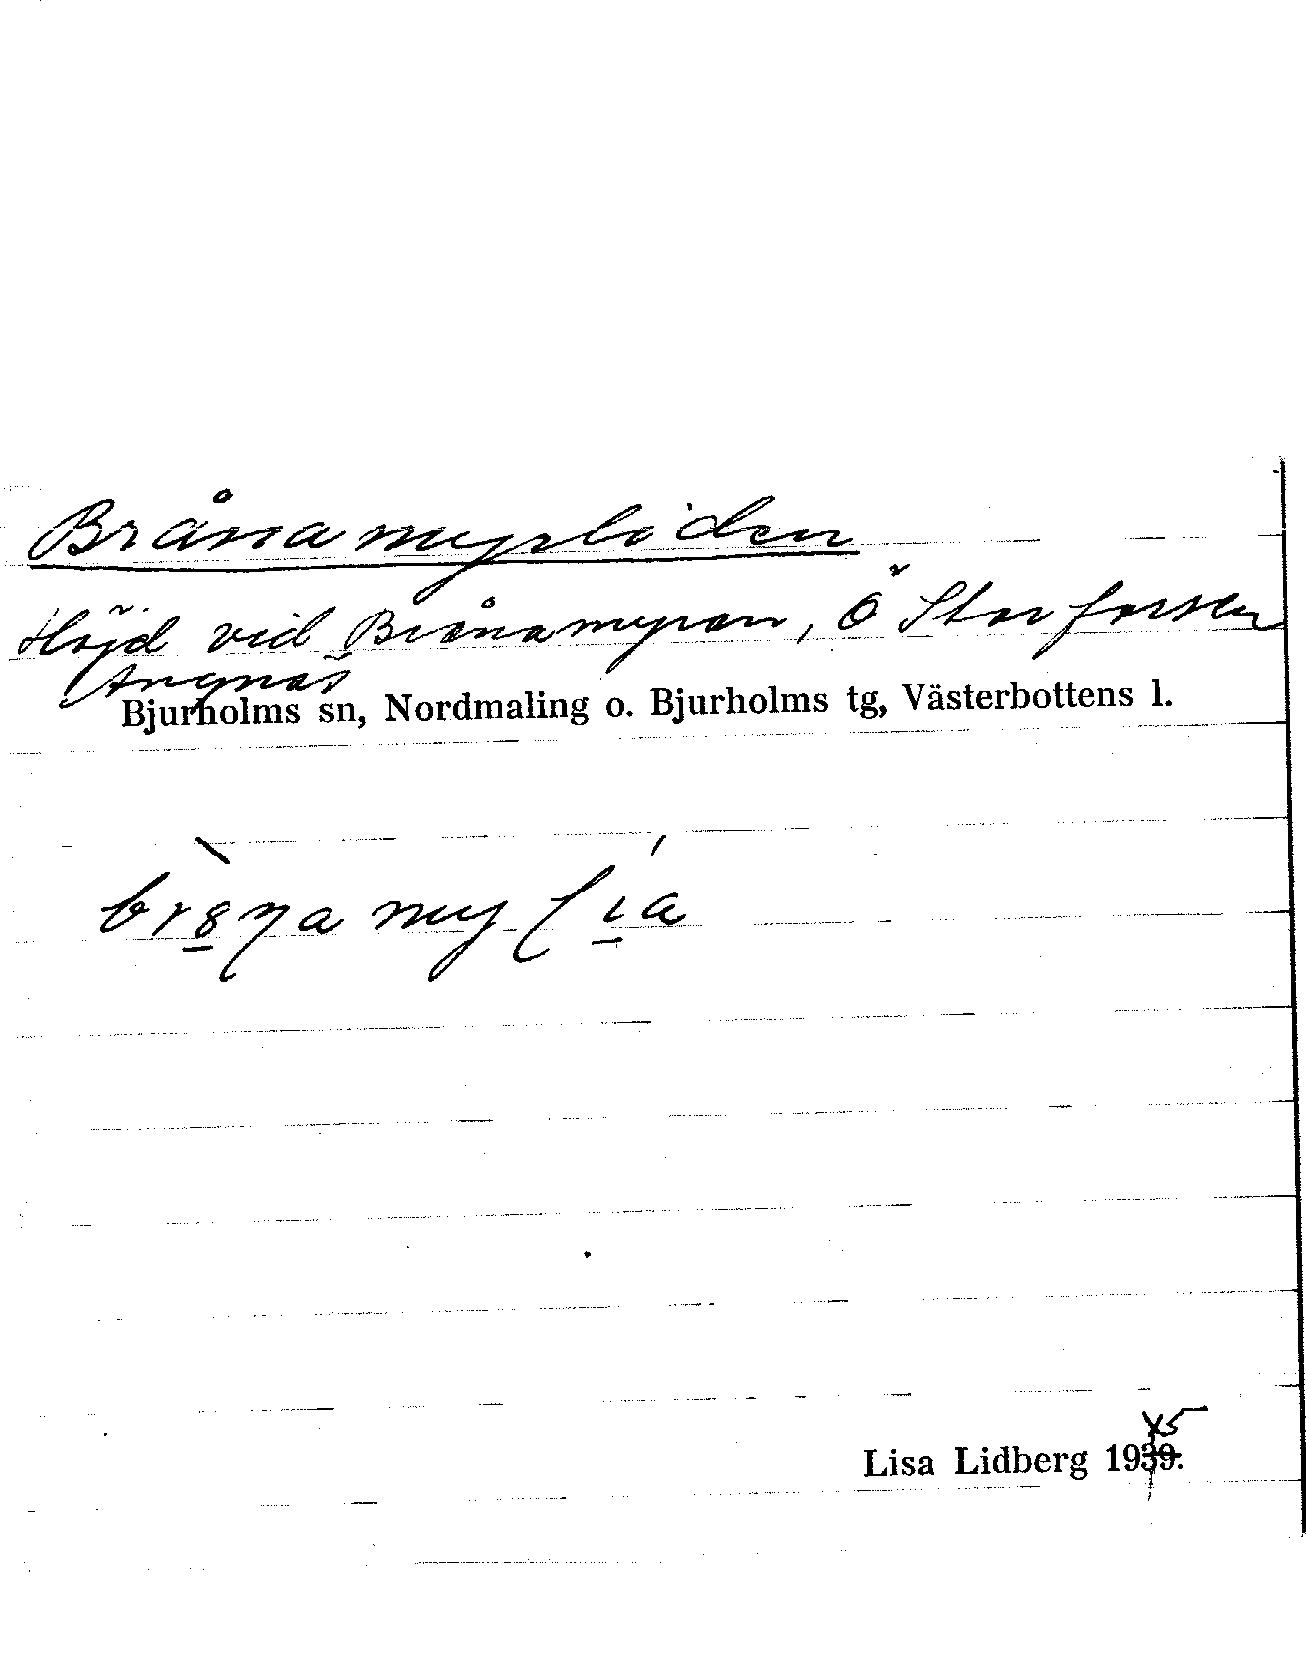 Brånamyrliden
Höjd vid Brånamyran, Ö Storforsen
Ängnäs
Bjurholms sn, Nordmaling o. Bjurholms tg, Västerbottens l.
Lisa Lidberg 1945